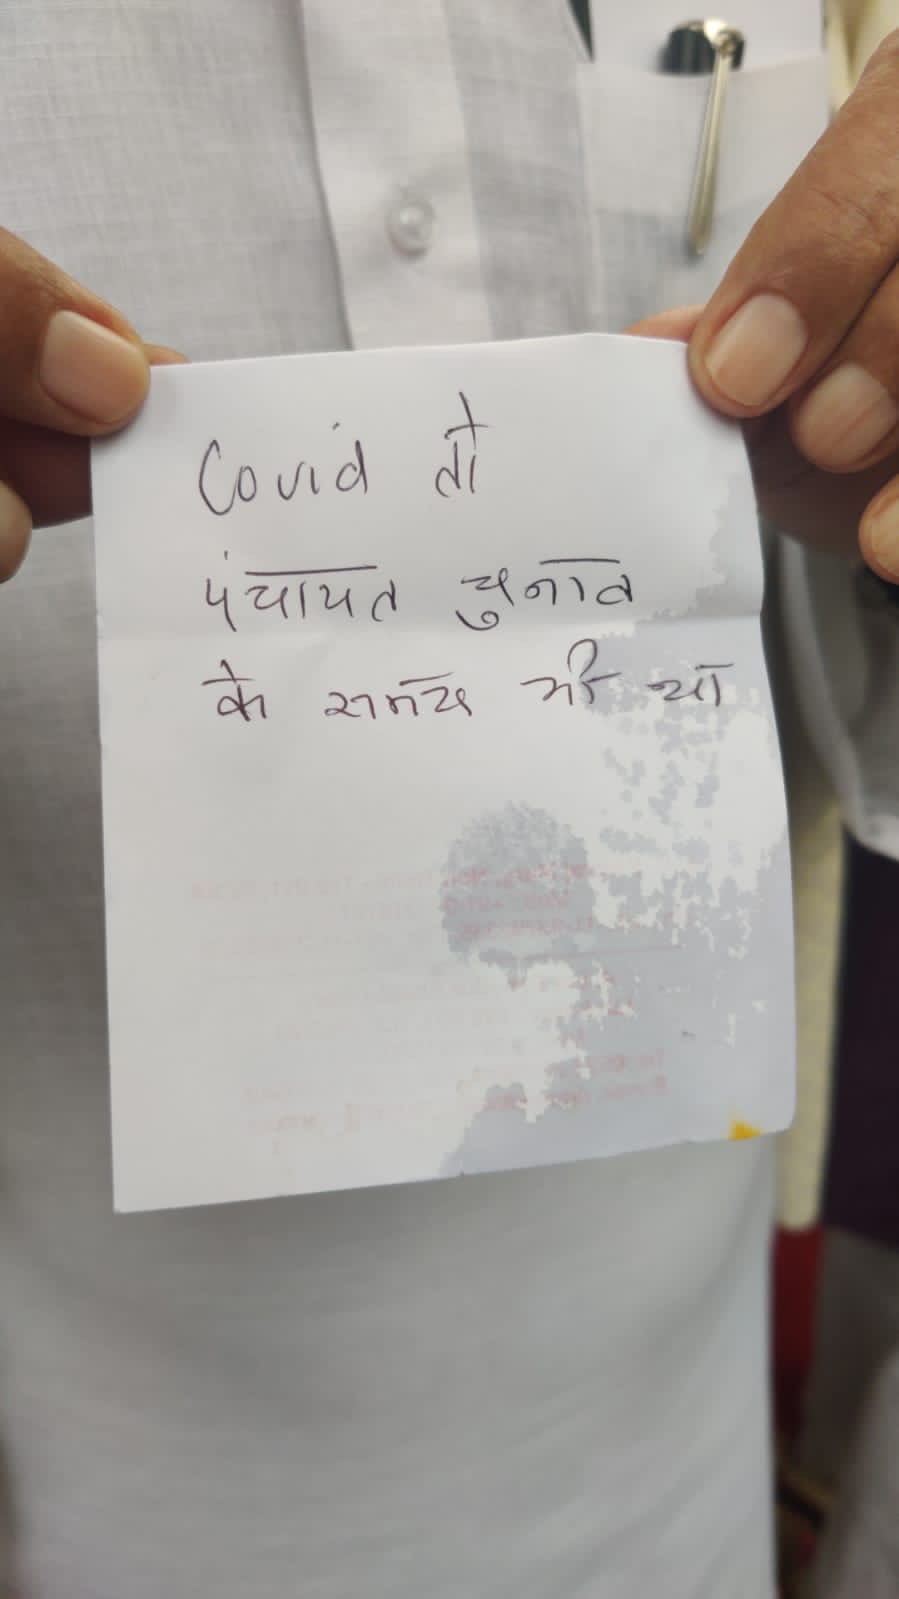 Covid तो
पंचायत चुनाव
के समय भी था